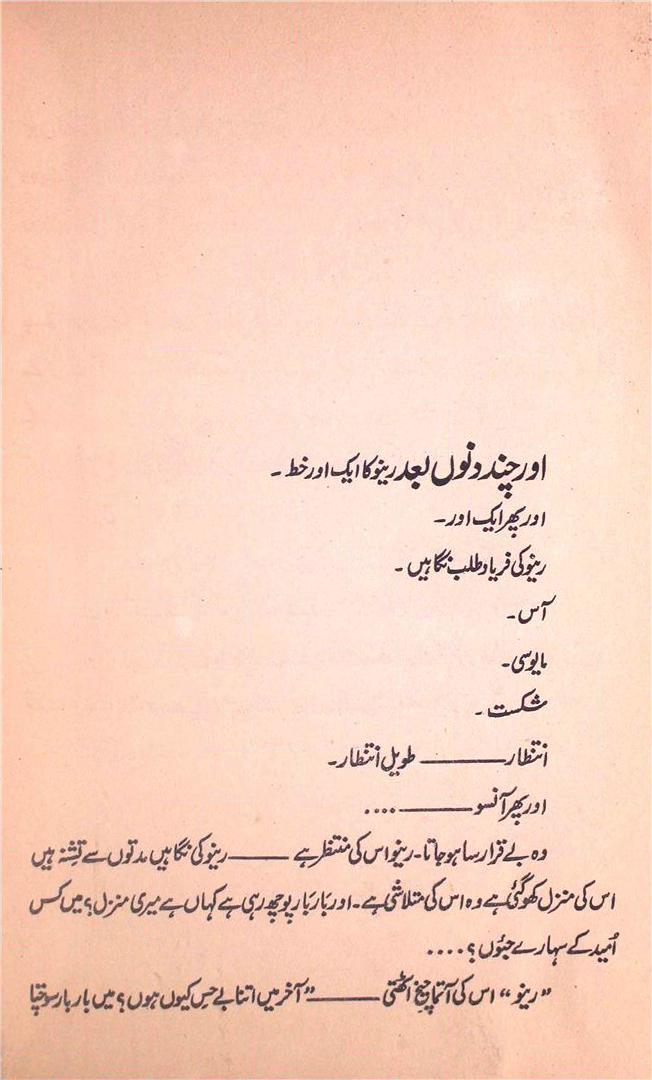 اور چند دنوں بعد رینو کا ایک اور خط ۔
اور پھر ایک اور ۔
رینو کی فریاد طلب نگاہیں ۔
آس ۔
مایوسی ۔
شکست ۔
انتظار ——— طویل انتظار ۔
اور پھر آنسو ——— ....
وہ بے قرار سا ہو جاتا ۔ رینو اس کی منتظر ہے ——— رینو کی نگاہیں مدتوں سے تشنہ ہیں
اس کی منزل کھو گئی ہے وہ اس کی متلاشی ہے ۔ اور بار بار پوچھ رہی ہے کہاں ہے میری منزل ؟ میں کس
اُمید کے سہارے جیوں ؟ ....
”رینو“ اس کی آتما چیخ اٹھتی ——— ”آخر میں اتنا بے حِس کیوں ہوں ؟ میں بار بار سوچتا